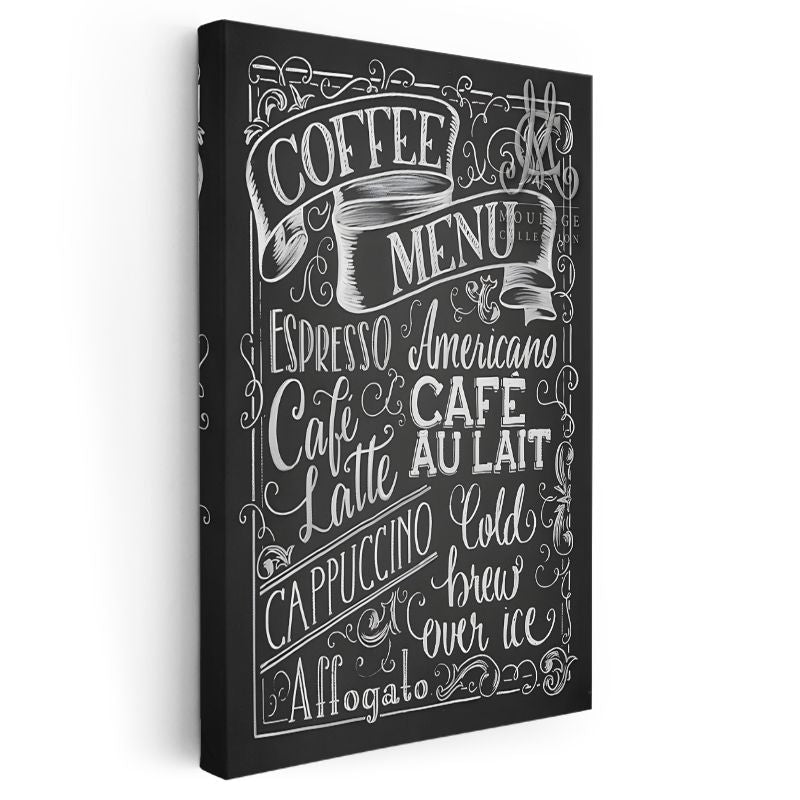 COFFEE
MENU
MOULAGE
COLLECTION
ESPRESSO
Americano
Café
Latte
CAFÉ
AU LAIT
CAPPUCCINO
Cold
brew
over ice
Affogato